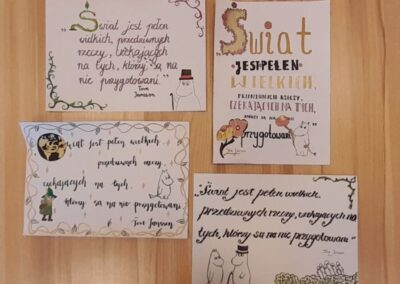 "Świat jest pełen
wielkich, przedziwnych
rzeczy, czekających
na tych, którzy są na
nie przygotowani."
Tove
Jansson
"Świat
JEST PEŁEN
WIELKICH,
PRZEDZIWNYCH RZECZY,
CZEKAJĄCYCH NA TYCH,
KTÓRZY SĄ NA
nie
przygotowani"
Tove Jansson
Świat jest pełen wielkich
przedziwnych rzeczy,
czekających na tych,
którzy są na nie przygotowani
Tove Jansson
"Świat jest pełen wielkich,
przedziwnych rzeczy, czekających na
tych, którzy są na nie przygotowani"
Tove Jansson